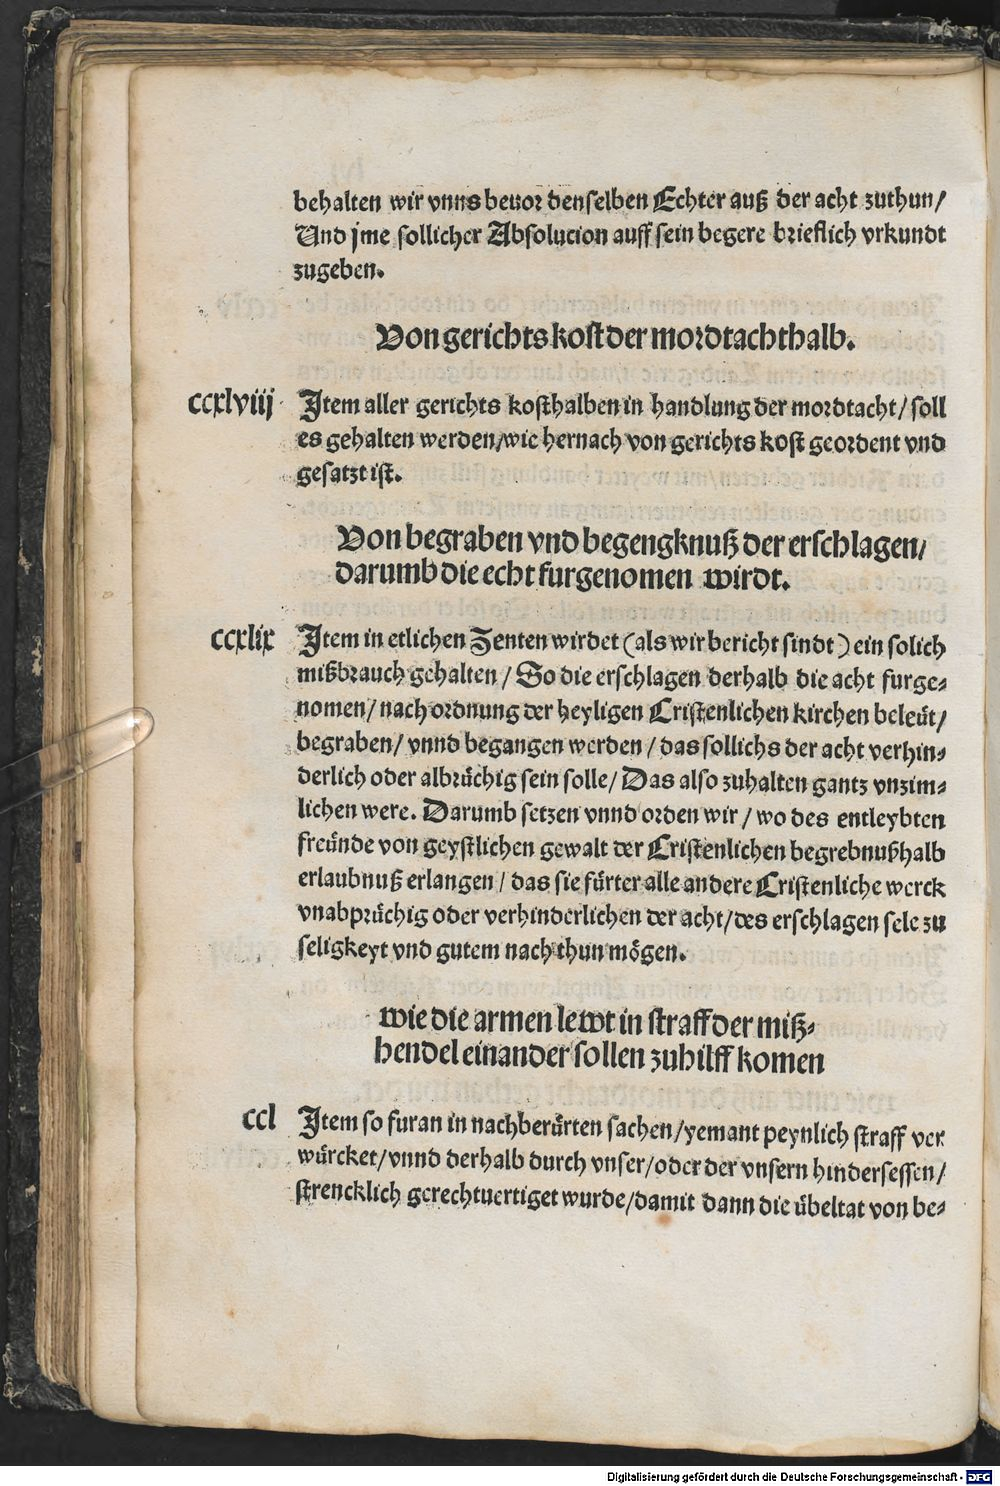 behalten wir vnns beuor denselben Echter auß der acht zuthun/
Und jme sollicher Absolucion auff sein begere brieflich vrkundt
zugeben.
Von gerichts kost der mordtachthalb.
ccxlviij Jtem aller gerichts kosthalben in handlung der mordtacht/ soll
es gehalten werden/wie hernach von gerichts kost geordent vnd
gesatzt ist.
Von begraben vnd begengknuß der erschlagen/
darumb die echt furgenomen wirdt.
ccxlix Jtem in etlichen Zenten wirdet (als wir bericht sindt) ein solich
mißbrauch gehalten / So die erschlagen derhalb die acht furge-
nomen/ nach ordnung der heyligen Cristenlichen kirchen beleüt/
begraben/ vnnd begangen werden / das sollichs der acht verhin-
derlich oder albrüchig sein solle/ Das also zuhalten gantz vnzim-
lichen were. Darumb setzen vnnd orden wir / wo des entleybten
freünde von geystlichen gewalt der Cristenlichen begrebnußhalb
erlaubnuß erlangen / das sie fürter alle andere Cristenliche werck
vnabprüchig oder verhinderlichen der acht/des erschlagen sele zu
seligkeyt vnd gutem nach thun mögen.
wie die armen lewt in straff der miß-
hendel einander sollen zuhilff komen
ccl Jtem so furan in nachberürten sachen/yemant peynlich straff ver
würcket/vnnd derhalb durch vnser/oder der vnsern hindersessen/
strencklich gerechtuertiget wurde/damit dann die übeltat von be-
Digitalisierung gefördert durch die Deutsche Forschungsgemeinschaft - DFG